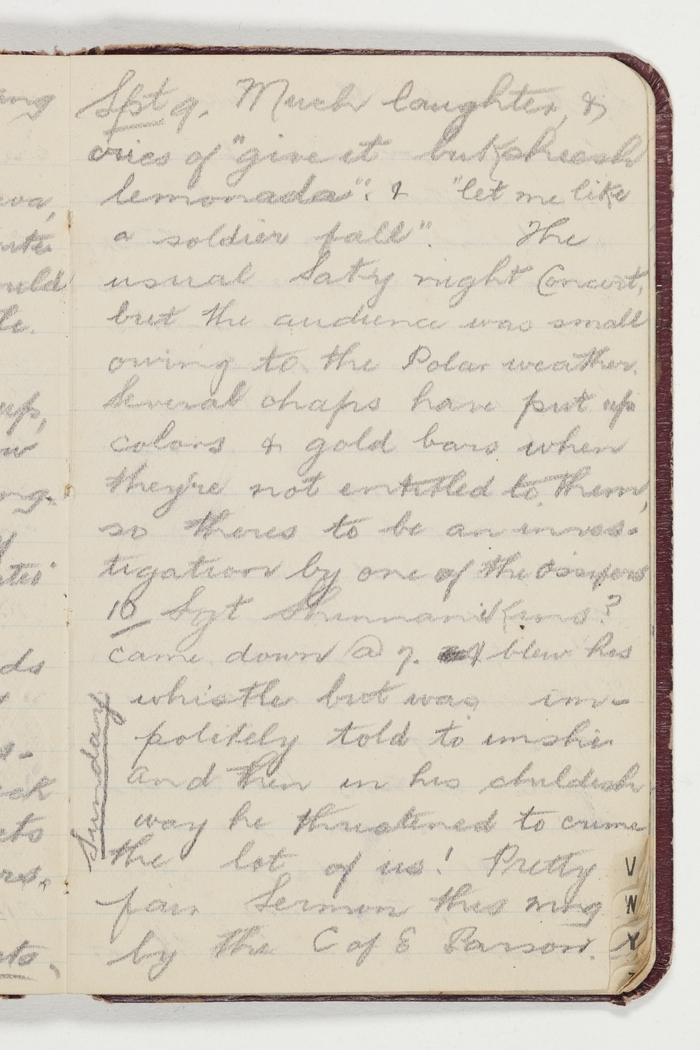 Spt 9. Much laughter, &
cries of "give it
lemonada": & "let me like
a soldier fall". The
usual Sat'y night Concert,
but the audience was small
owing to the Polar weather.
Several chaps have put up
colors & gold bars when
they're not entitled to them,
so theres to be an inves-
tigation by one of the ossifers
10 Sgt
came down @ 7. & blew his
whistle but was im-
politely told to imshi
Sunday
and then in his childish
way he threatened to crime
the lot of us! Pretty
fair Sermon this mng
by the C of E Parson.
V
W
Y